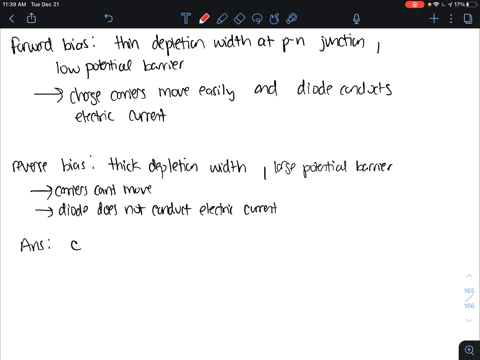 11:39 AM Tue Dec 21
17%
forward bias: thin depletion width at p-n junction,
low potential barrier
→ charge carriers move easily and diode conducts
electric current
reverse bias: thick depletion width, large potential barrier
→ carriers cant move
→ diode does not conduct electric current
Ans: C
165
166